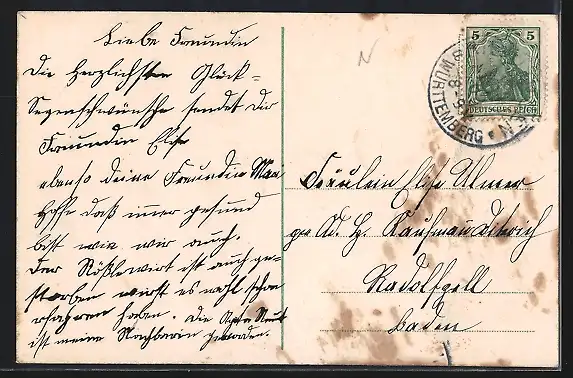 Liebe Freundin
Die herzlichsten Glück-
Segenswünsche sendet dir
Freundin Elise
ebenso deine Freundin
Hoffe daß immer gesund
bist wie wir auch.
Der Rößlewirt ist auch ge-
storben wirst es wohl schon
erfahren haben. Die
ist meine Nachbarin geworden.
N
5 5
DEUTSCHES REICH
WÜRTTEMBERG
Fräulein Elise Ulmer
Kaufmann
Radolfzell
Baden